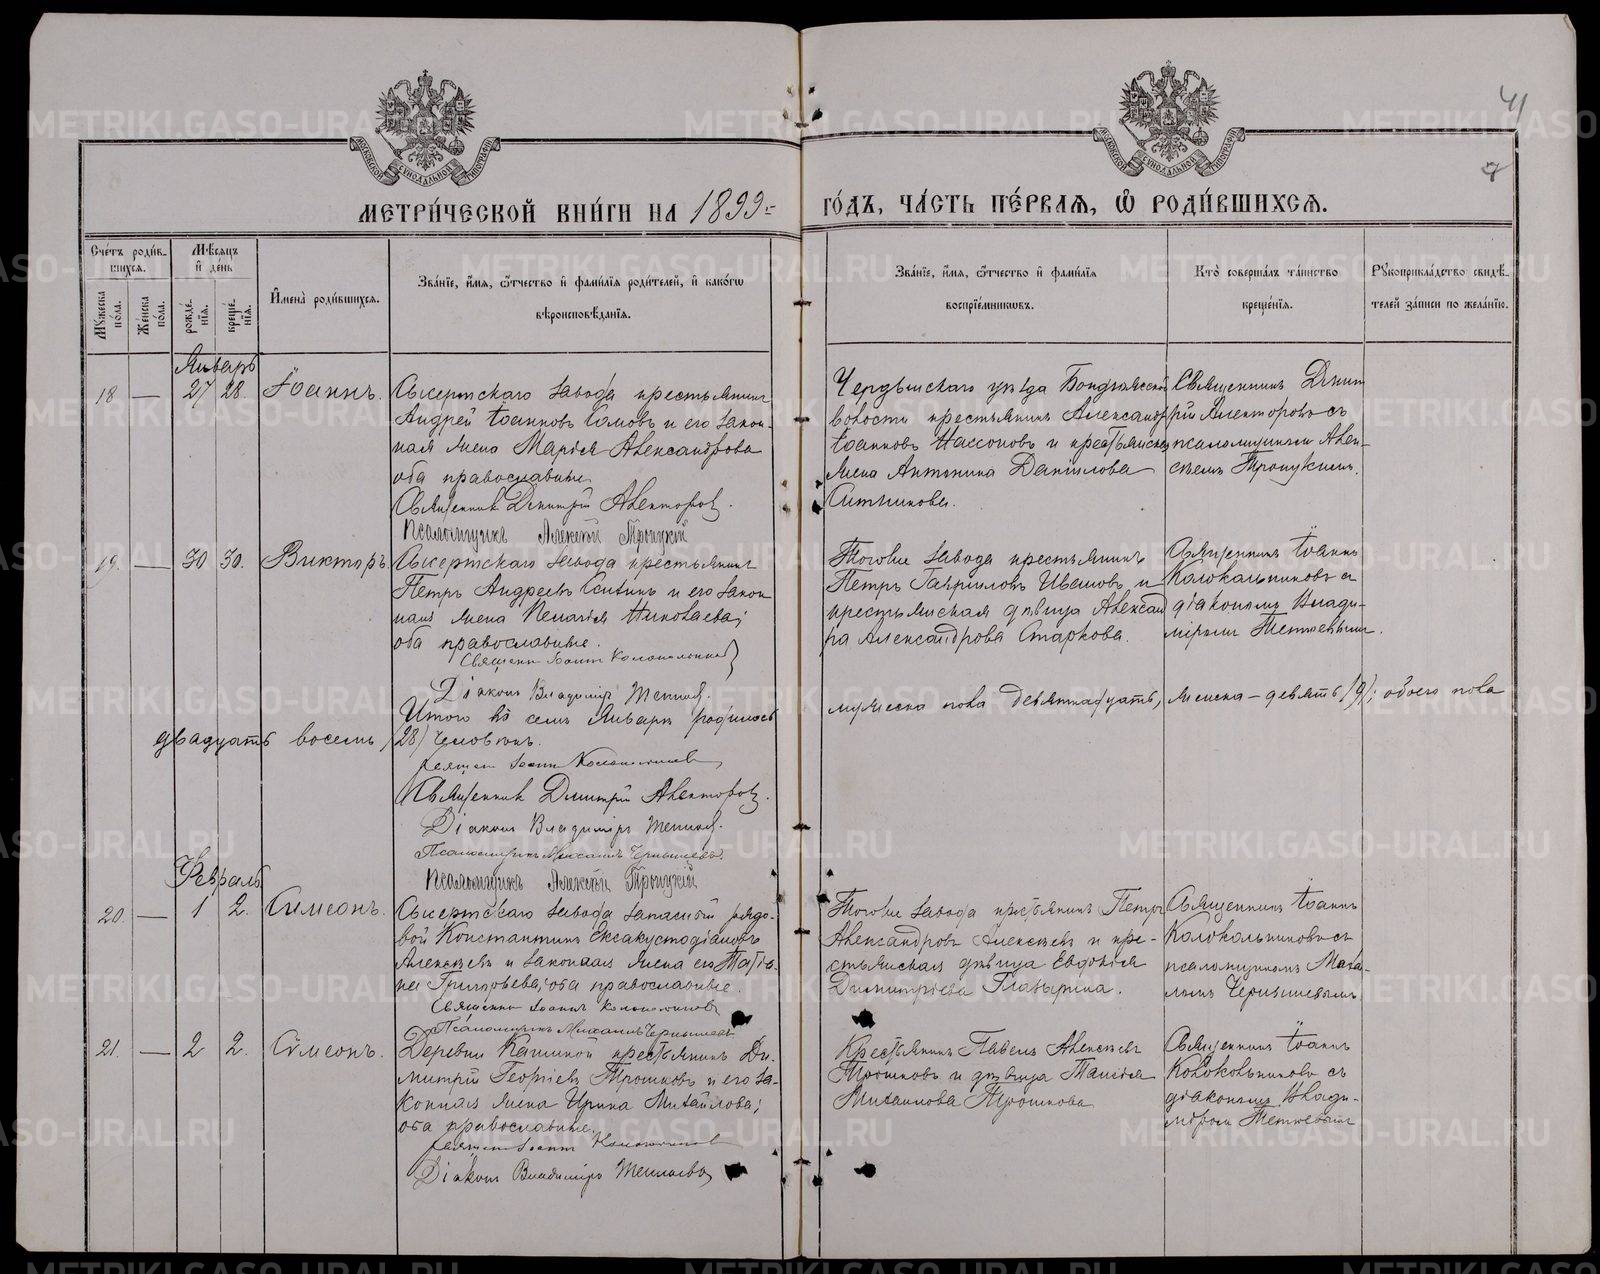 41
7
МЕТРИ́ЧЕСКОЙ КНИ́ГИ НА 1899=
ГО́ДЪ, ЧА́СТЬ ПЕ́РВАѦ, Ѡ҆ РОДИ́ВШИХСѦ.
Сче́тъ роди́в-
шихсѧ.
Мѹ́жеска по́ла.
Же́нска по́ла.
Мѣ́сѧцъ и҆ де́нь
рожде́-нїѧ.
креще́-нїѧ.
И҆мена̀ роди́вшихсѧ.
Зва́нїе, и҆́мѧ, ѻ҆́тчество и҆ фами́лїѧ роди́телей, и҆ како́гѡ
вѣроисповѣ́данїѧ.
Зва́нїе, и҆́мѧ, ѻ҆́тчество и҆ фами́лїѧ
воспрїе́мникѡвъ.
Кто̀ соверша́лъ та́инство
креще́нїѧ.
Рѹкоприкла́дство свидѣ́-
телей за́писи по жела́нїю.
Январь
18 — 27 28. Іоаннъ.
Сысертскаго завода крестьянинъ
Андрей Іоанновъ Сомовъ и его закон-
ная жена Марія Александрова
оба православные
Священник Димитрій Авекторов.
Псаломщикъ Алексѣй Троицкій
Чердынскаго уѣзда Бондюжской
волости крестьянинъ Александръ
Іоанновъ Нассоновъ и крестьянская
жена Антонина Данилова
Ситникова.
Священникъ Дмит-
рій Авекторовъ съ
псаломщикомъ Алек-
сѣемъ Троицкимъ.
19. — 30 30. Викторъ.
Сысертскаго завода крестьянинъ
Петръ Андреевъ и его закон
ная жена Пелагія Николаева;
оба православные.
Священ Іоаннъ Колокольников
Діаконъ Владимір
Тогоже завода крестьянинъ
Петръ Гавриловъ Ивановъ и
крестьянская дѣвица Александ
ра Александрова Старкова.
Священникъ Іоаннъ
Колокольниковъ съ
діакономъ Влади-
міромъ
Итого въ семъ Январѣ родилось
мужеска пола девятнадцать, женска — девять (9); обоего пола
двадцать восемь (28) человѣкъ.
Священ Іоаннъ Колокольников
Священник Дмитрій Авекторов.
Діаконъ Владимір
Псаломщикъ Михаилъ Чернышевъ.
Псаломщикъ Алексѣй Троицкій
Февраль
20. — 1 2. Симеонъ.
Сысертскаго завода запасный рядо-
вой Константинъ Ексакустодіановъ
Алексѣевъ и законная жена его Татіа-
на Григорьева; оба православные.
Священ Іоаннъ Колокольников
Псаломщикъ Михаилъ Чернышевъ
Тогоже завода крестьянинъ Петръ
Александровъ Алексѣевъ и кре-
стьянская дѣвица Евдокія
Димитріева Глазырина.
Священникъ Іоаннъ
Колокольниковъ съ
псаломщикомъ Миха-
ломъ Чернышевымъ
21. — 2 2. Симеонъ.
Деревни Кашиной крестьянинъ Ди-
митрій Георгіевъ Трошковъ и его за-
конная жена Ирина Михайлова;
оба православные.
Священ Іоаннъ Колокольников
Діаконъ Владиміръ
Крестьянинъ Павелъ Алексѣевъ
Трошковъ и дѣвица Таисія
Михаилова Трошкова
Священникъ Іоаннъ
Колокольниковъ съ
діакономъ Влади-
міромъ
METRIKI.GASO-URAL.RU